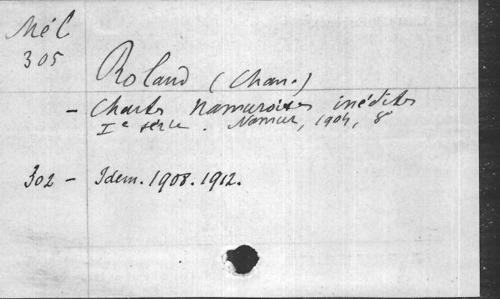 Mél
305
Roland (Chan.)
- Chartes Namuroises inédites
Ie série. Namur, 1904, 8°
302 - Idem. 1908. 1912.